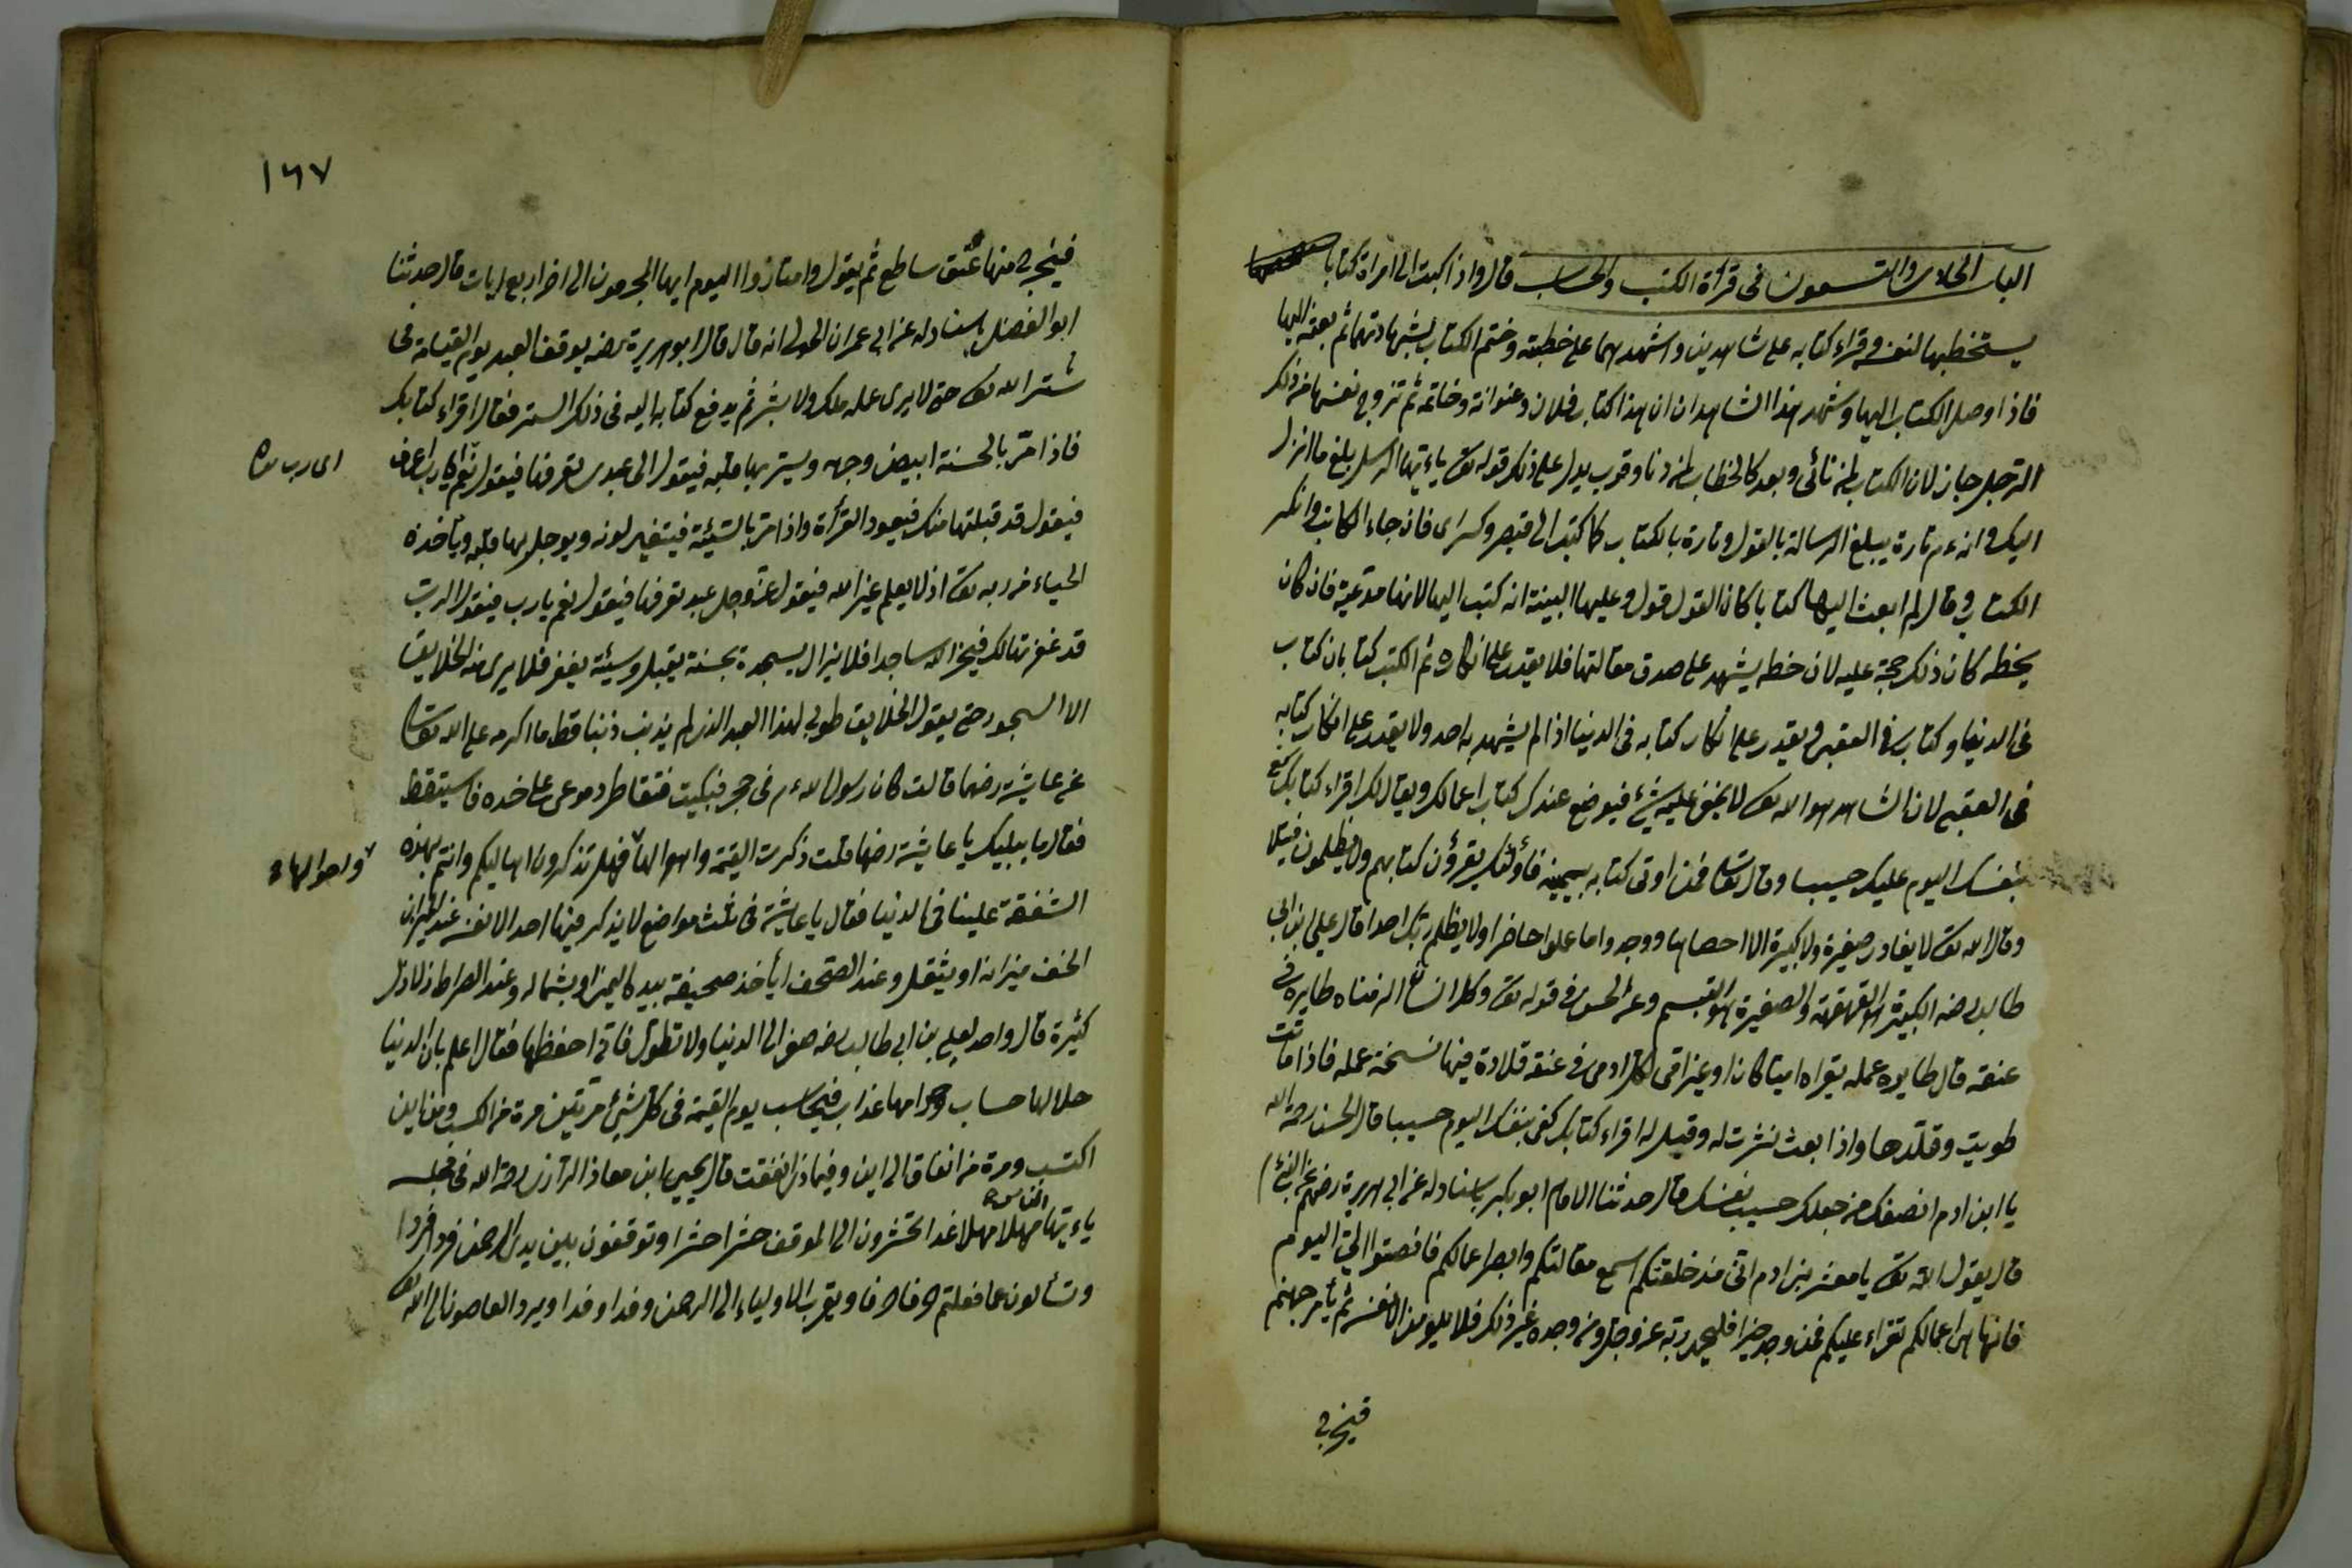 الباب الحادى والتسعون فى قرأة الكتب والحساب قالوا اذا كتب الى امرأة كتابا
يستخطبها لنفسه وقراء كتابه على شاهدين واشهدهما على خطبته وختم الكتاب بشهادتهما ثم بعثه اليها
فاذا وصل الكتاب اليها وشهد هذا الشاهدان ان هذا كتاب فلان وعنوانه وخاتمه ثم تزوج نفسها من ذلك
الرجل جاز لان الكتاب لمن نائى وبعد كالخطاب لمن دنا وقرب يدل على ذلك قوله تع ياءيها الرسل بلغ ما انزل
اليك وانه عم تارة يبلغ الرسالة بالقول وتارة بالكتاب كما كتب الى قيصر وكسرى فان جاء الكاتب وانكر
الكتاب وقال لم ابعث اليها كتابا كان القول قوله وعليها البينة انه كتب اليها لانها مدعية فان كان
بخطه كان ذلك حجة عليه لان خطه يشهد على صدق مقالتها فلا يقدر على انكاره ثم الكتب كتابان كتاب
فى الدنيا وكتاب فى العقبى ويقدر على انكار كتابه فى الدنيا اذا لم يشهد به احد ولا يقدر على انكار كتابه
فى العقبى لان الشاهد هو الله تع لا يخفى عليه شئ فيوضع عندك كتاب اعمالك ويقال لك اقراء كتابك كفى
بنفسك اليوم عليك حسيبا وقال تعا فمن اوتى كتابه بيمينه فأولئك يقرؤن كتابهم ولا يظلمون فتيلا
وقال الله تع لا يغادر صغيرة ولا كبيرة الا احصاها ووجدوا ما عملوا حاضرا ولا يظلم ربك احدا قال على ابن ابى
طالب رضه الكبيرة هو القهقهة والصغيرة هو التبسم وعن الحسن فى قوله تع وكل انسان الزمناه طايره فى
عنقه قال طايره عمله يقراه اميا كان او غير امى لكل ادمى فى عنقه قلادة فيها نسخة عمله فاذا مات
طويت وقلدها واذا بعث نشرت له وقيل له اقراء كتابك كفى بنفسك اليوم حسيبا قال الحسن رحمة الله
يا ابن ادم انصفك من جعلك حسيب نفسك قال حدثنا الامام ابو بكر باسناد له عن ابى هريرة رضهم عن النبى عم
قال يقول الله تع يا معشر بنى ادم انى منذ خلقتكم اسمع مقالتكم وابصر اعمالكم فانصتوا الى اليوم
فانها هى اعمالكم تقراء عليكم فمن وجد خيرا فليحمد ربه عز وجل ومن وجده غير ذلك فلا يلومن الا نفسه ثم يأمر جهنم
فيخرج
١٦٧
فيخرج منها عنق ساطع ثم يقول وامتازوا اليوم ايها المجرمون الى اخر اربع ايات قال حدثنا
ابو الفضل باسناد له عن ابى عمران الجونى انه قال قال ابو هريرة رضه يوقف العبد يوم القيامة فى
ستر الله تع حتى لا يرى عمله ملك ولا بشر ثم يدفع كتابه اليه فى ذلك الستر فقال اقراء كتابك
فاذا مر بالحسنة ابيض وجهه ويستر بها قلبه فيقول الى عبدى تعرفها فيقول نعم يا رب اعرف
اى رب
فيقول قد قبلتها منك فيعود القرأة واذا مر بالسيئة فيتغير لونه ويوجل بها قلبه ويأخذه
الحياء من ربه تع اذ لا يعلم غير الله فيقول عز وجل عبد تعرفها فيقول نعم يا رب فيقول الرب
قد غفرتها لك فيخر له ساجدا فلا يزال يسجدة بحسنة يقبل وسيئة يغفر فلا يرى منه الخلايق
الا السجود حتى يقول الخلايق طوبى لهذا العبد الذى لم يذنب ذنبا قط ما اكرمه على الله تعا
عن عايشة رضها قالت كان رسول الله عم فى حجرى فبكيت فتقاطر دموعى على خده فاستيقظ
فقال ما يبكيك يا عايشة رضها قلت ذكرت القيمة واهوالها فهل تذكرون اهاليكم وانتم بهذه
واحوالها
الشفقة علينا فى الدنيا فقال يا عايشة فى ثلث مواضع لا يذكر فيها احد الا نفسه عند الميزان
الخف ميزانه او يثقل وعند الصحف ايأخذ صحيفة بيده اليمين او بشماله وعند الصراط زلازل
كثيرة قال واحد لعلى بن ابى طالب رضه صف لى الدنيا ولا تطول فانى احفظها فقال اعلم بان الدنيا
حلالها حساب وحرامها عذاب فيحاسب يوم القيمة فى كل شئ مرتين مرة من الكسب ومن اين
اكتسب ومرة من انفاق الى اين وفيما ذا انفقت قال يحيى ابن معاذ الرازى رحمة الله فى مجلسه
ياءيها الناس مهلا مهلا غدا تحشرون الى الموقف حشرا حشرا وتوقفون بين يدى الرحمن فردا فردا
وتسألون عما فعلتم حرفا حرفا ويقرب الاولياء الى الرحمن وفدا وفدا ويرد العاصون الى الله تع